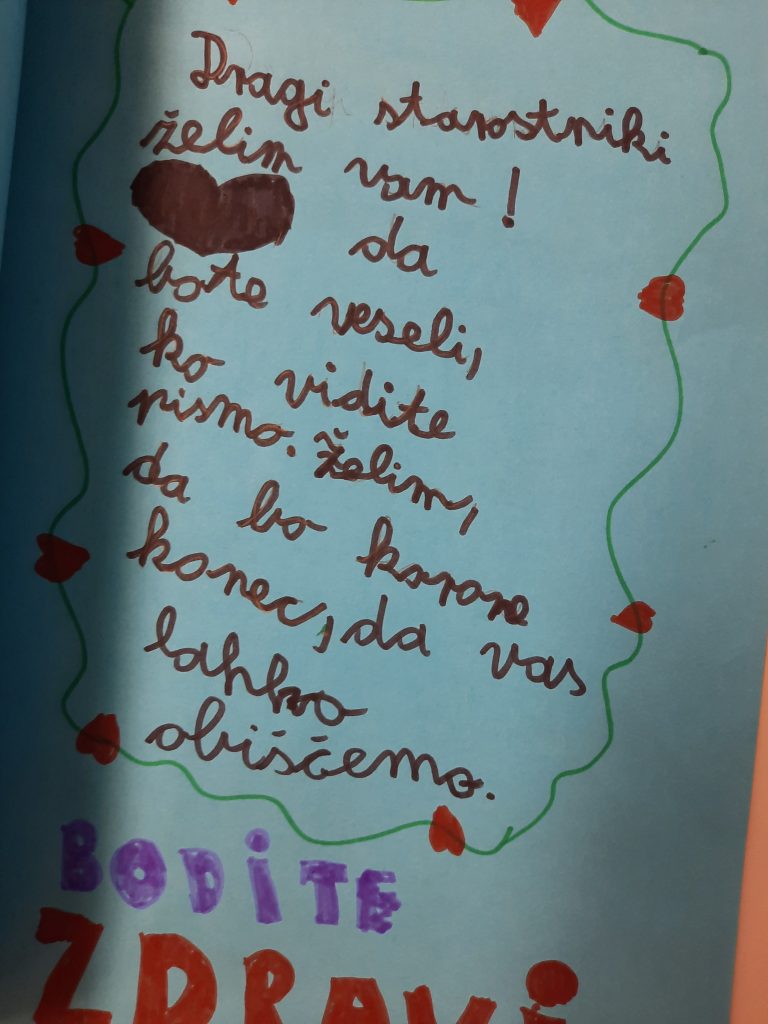 Dragi starostniki
želim vam!
da
bote veseli,
ko vidite
pismo. Želim,
da bo korone
konec, da vas
lahko
obiščemo.
BODiTE
ZDRAVi